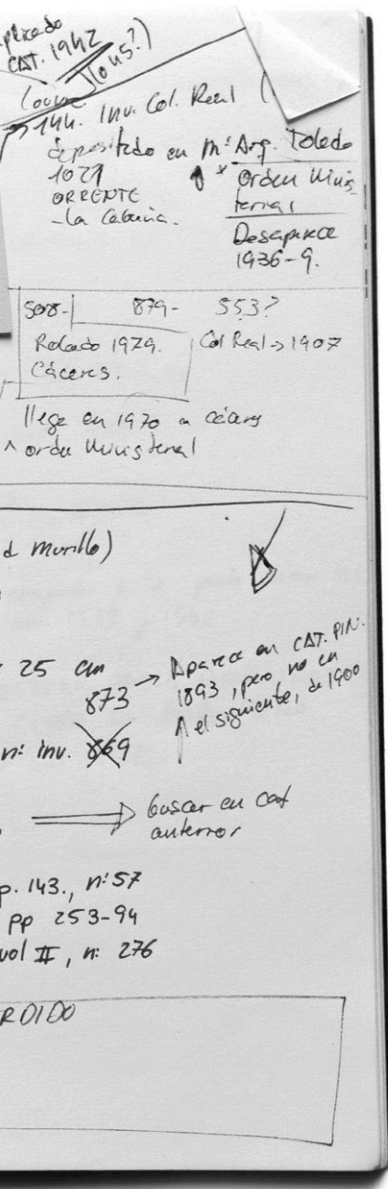 CAT. 1942
(o 45?)
144. Inv. Col. Real (
depositado en M: Arq. Toledo
1021
ORRENTE
- La Cabaña.
Orden Minis
terial
Desaparece
1936-9.
879- 553?
Robado 1979.
Cáceres.
Col Real → 1907
llega en 1970 a
^ orden Ministerial
d Murillo)
25 cm
873 → Aparece en CAT. PIN.
1893, pero no en
el siguiente, de 1900
nº inv. 869
⇒ buscar en cat
anterior
p. 143., nº 57
pp 253-94
vol II, n: 276
RDIDO